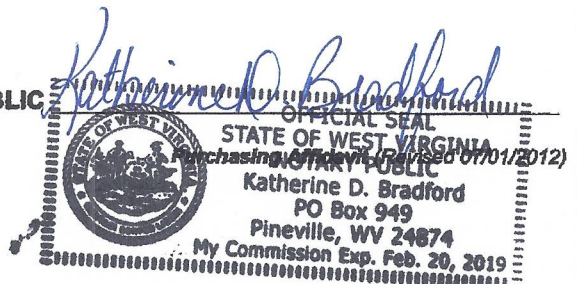 Katherine D. Bradford
BLIC
OFFICIAL SEAL
STATE OF WEST VIRGINIA
Purchasing Affidavit (Revised 07/01/2012)
NOTARY PUBLIC
Katherine D. Bradford
PO Box 949
Pineville, WV 24874
My Commission Exp. Feb. 20, 2019
STATE OF WEST VIRGINIA